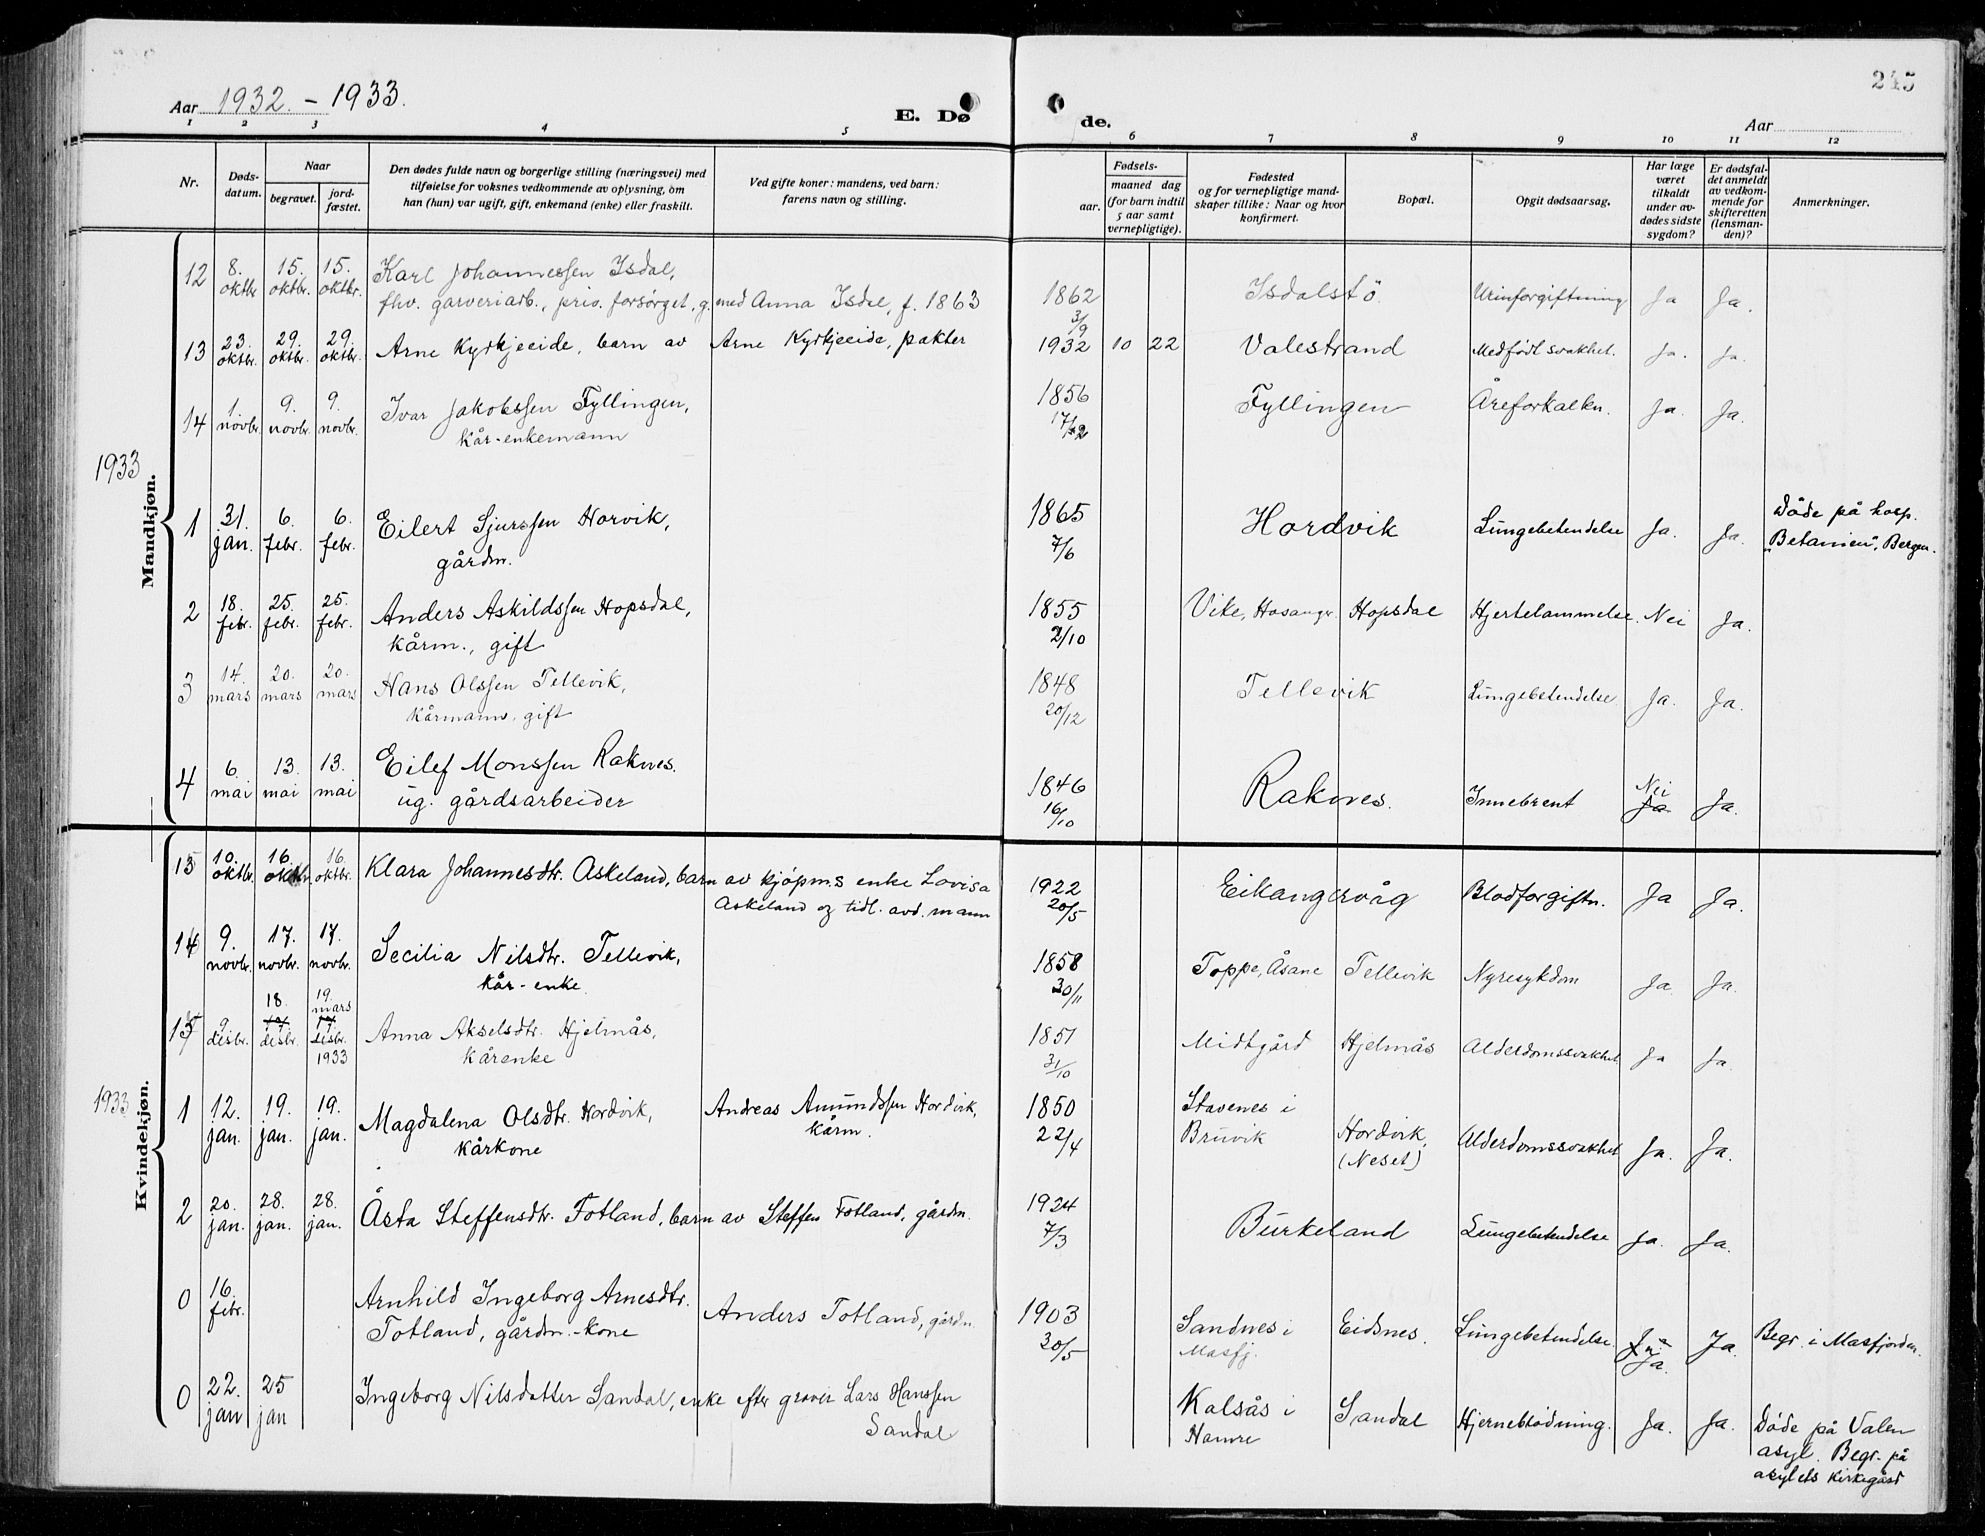 245
Aar 1932. - 1933.
E. Dø de.
Aar
1 2 3 4 5 6 7 8 9 10 11 12
Nr.
Døds-datum.
Naar
begravet.
jord-fæstet.
Den dødes fulde navn og borgerlige stilling (næringsvei) med
tilføielse for voksnes vedkommende av oplysning, om
han (hun) var ugift, gift, enkemand (enke) eller fraskilt.
Ved gifte koner: mandens, ved barn:
farens navn og stilling.
Fødsels-
aar.
maaned dag
(for barn indtil
5 aar samt
vernepligtige).
Fødested
og for vernepligtige mand-
skaper tillike: Naar og hvor
konfirmert.
Bopæl.
Opgit dødsaarsag.
Har læge
været
tilkaldt
under av-
dødes sidste
sygdom?
Er dødsfal-
det anmeldt
av vedkom-
mende for
skifteretten
(lensman-
den)?
Anmerkninger.
Mandkjøn.
12 8. oktbr 15. oktbr. 15. oktbr. Karl Johannessen Isdal,
fhv. garveriarb., priv. forsørget, g. med Anna Isdal, f. 1863 1862 3/9 Isdalstö. Urinforgiftning Ja Ja.
13 23. oktbr. 29. oktbr. 29. oktbr. Arne Kyrkjeeide, barn av Arne Kyrkjeeide, pakter 1932 10 22 Valestrand Medfödt svakhet. Ja. Ja.
14 1. novbr. 9. novbr. 9. novbr. Ivar Jakobssen Fyllingen,
kår-enkemann 1856 Fyllingen Åreforkalkn. Ja. Ja.
1933
1 31. jan. 6. febr. 6. febr. Eilert Sjurssen Horvik,
gårdm. 1865 7/6 Hordvik Lungebetendelse Ja. Ja. Döde på hosp.
"Betanien", Bergen.
2 18. febr. 25. febr. 25. febr. Anders Askildssen Hopsdal,
kårm., gift 1855 2/10 Vike, Hosanger Hopsdal Hjertelammelse. Nei Ja.
3 14. mars 20. mars 20. mars Hans Olssen Tellevik,
kårmann, gift 1848 20/12 Tellevik Lungebetendelse. Ja. Ja.
4 6. mai 13. mai 13. mai Eilef Monssen Raknes.
ug. gårdsarbeider 1846 16/10 Raknes. Innebrent Nei Ja Ja.
Kvindekjøn.
13 10. oktbr. 16. oktbr. 16. oktbr. Klara Johannesdtr. Askeland, barn av kjöpm.s enke Lovisa
Askeland og tidl. avd. mann 1922 20/5 Eikangervåg Blodforgiftn. Ja Ja.
14 9. novbr. 17. novbr. 17. novbr. Secilia Nilsdtr. Tellevik,
kår-enke. 1858 30/11 Toppe, Åsane Tellevik Nyresykdom Ja Ja.
15 9. desbr. 18. 17 desbr. 19. mars 17 desbr. 1933 Anna Akselsdtr. Hjelmås,
kårenke 1851 31/10 Midtgård Hjelmås Alderdomssvakhet Ja Ja.
1933
1 12. jan. 19. jan. 19. jan. Magdalena Olsdtr. Hordvik,
kårkone Andreas Amundssen Hordvik,
kårm. 1850 22/4 Stavenes i
Bruvik Hordvik,
(Neset) Alderdomssvakhet Ja. Ja.
2 20. jan. 28. jan. 28. jan. Åsta Steffensdtr. Fotland, barn av Steffen Fotland, gårdm. 1924 7/3 Burkeland Lungebetendelse Ja. Ja.
0 16. febr. Arnhild Ingeborg Arnesdtr.
Totland, gårdm.-kone Anders Totland, gårdm. 1903 30/5 Sandnes i
Masfj. Eidsnes. Lungebetendelse Ja. Ja. Begr. i Masfjorden.
0 22. jan 25 jan Ingeborg Nilsdatter Sandal, enke efter graver Lars Hanssen
Sandal Kalsås i
Hamre Sandal Hjerneblödning. Ja. Ja. Döde på Valen
asyl. Begr. på
asylets kirkegård